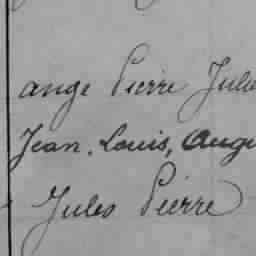 ange Pierre Jule
Jean. Louis, Auge
Jules Pierre